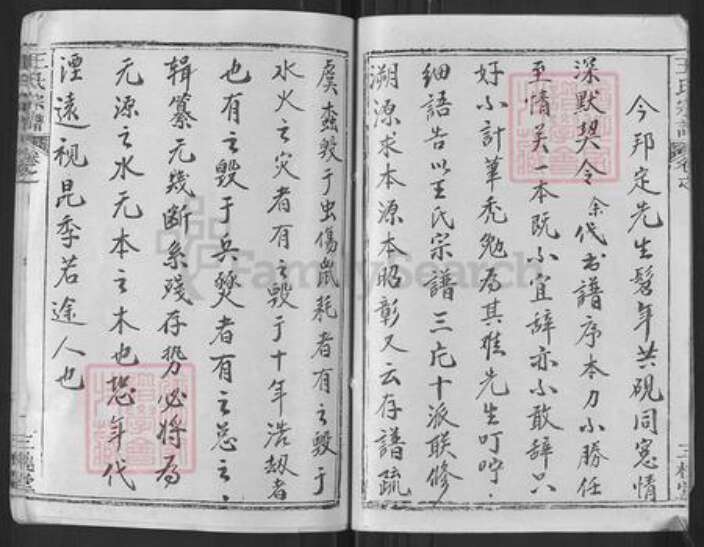 今邦定先生髫年共砚同窓情
深默契令余代书谱序本力小勝任
至情关一本既小宜辞亦小敢辞只
好小計笔禿勉为其难先生叮咛
细語告以王氏宗譜三庀十派联修
溯源求本源本昭彰又云存譜疏
虞蠹毁于虫傷鼠耗者有之毁于
水火之灾者有之毁于十年浩劫者
也有之毁于兵燹者有之总之
辑纂无幾断系残存势必將为
无源之水无本之木也恐年代
湮遠视昆季若途人也
王氏宗譜
卷之
三槐堂
王氏宗譜
三槐堂
FamilySearch